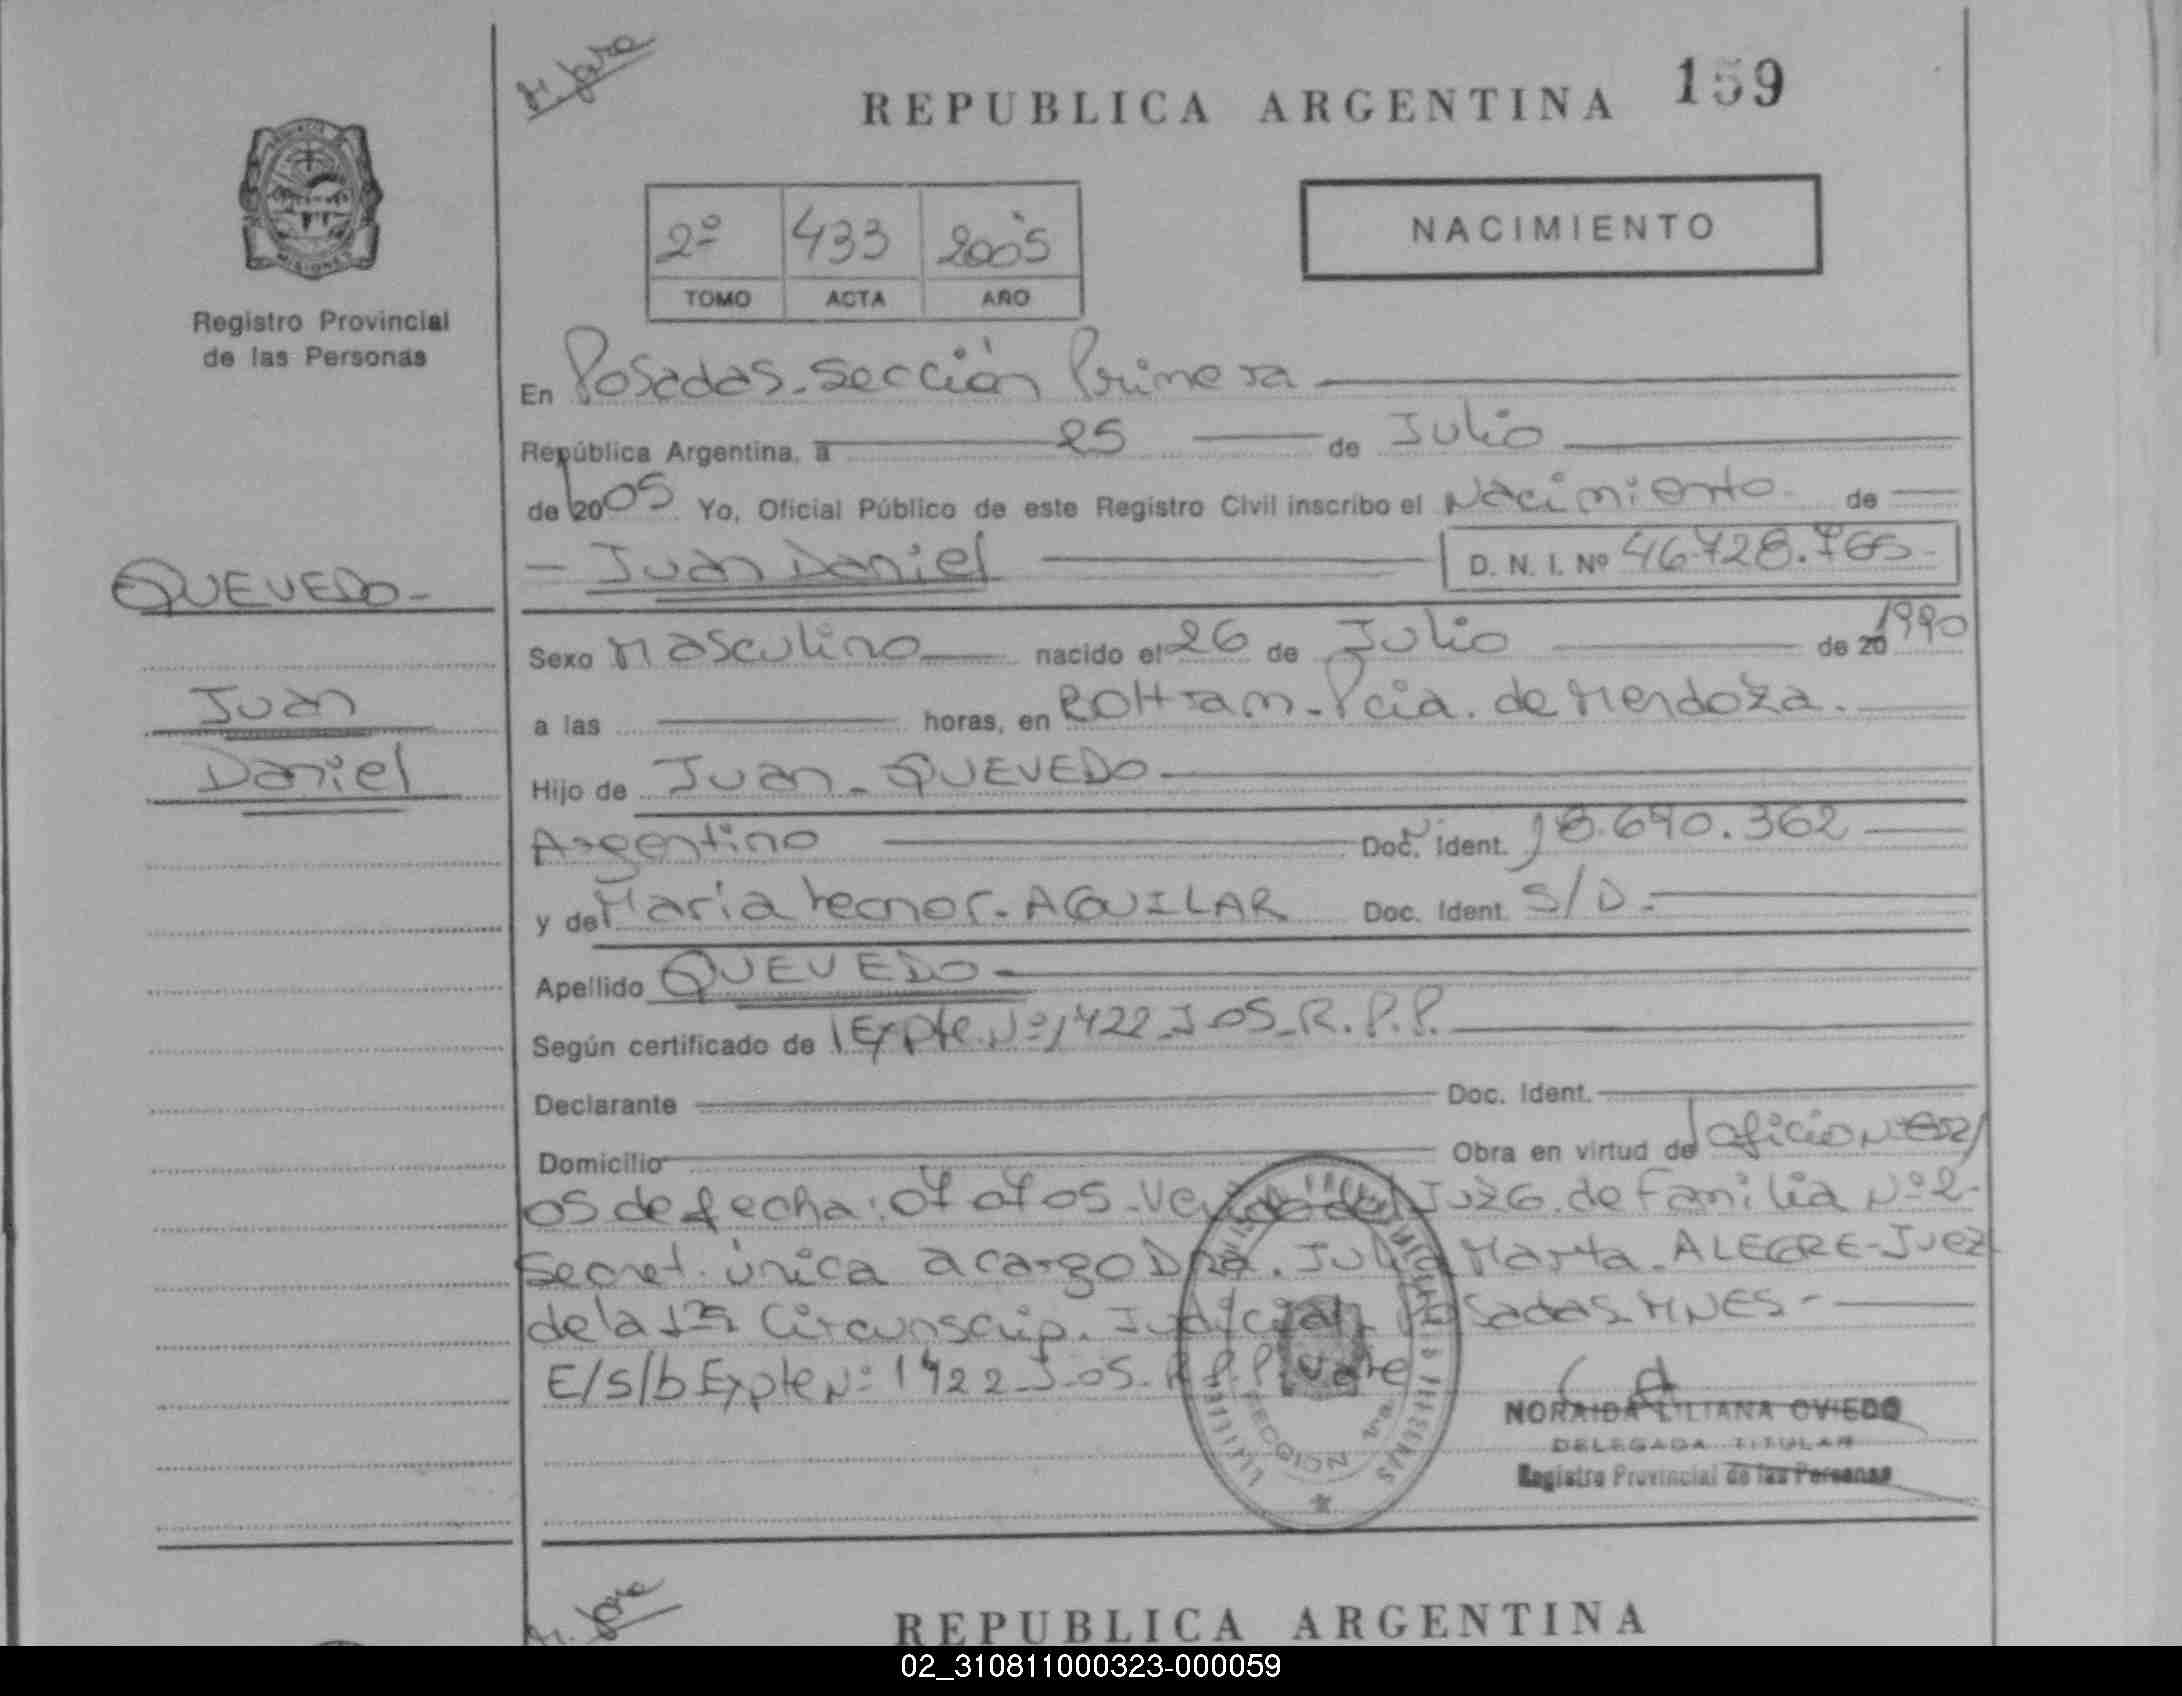 REPUBLICA ARGENTINA 159
NACIMIENTO
2º 433 2005
TOMO ACTA AÑO
MISIONES
Registro Provincial
de las Personas
En Posadas. Sección Primera
República Argentina, a 25 de Julio
de 2005 Yo, Oficial Público de este Registro Civil inscribo el Nacimiento de
Juan Daniel D. N. I. Nº 46.728.765
QUEVEDO
Juan
Daniel
Sexo Masculino nacido el 26 de Julio de 20 1990
a las horas, en Pcia. de Mendoza.
Hijo de Juan QUEVEDO
Argentino Doc. Ident. 18.690.362
y de Maria AGUILAR Doc. Ident. S/D.
Apellido QUEVEDO
Según certificado de Expte. Nº 1422 J-05-R.P.P.
Declarante Doc. Ident.
Domicilio Obra en virtud de oficio Nº
05 de fecha: 07 07 05 - del Juzg. de Familia Nº 2-
Secret. única a cargo Dra. Julia Marta ALEGRE - Juez
de la 1ra Circunscrip. Judicial Posadas MNES-
E/s/b Expte Nº 1422 J-05-R.P.P. Vale
NORAIDA LILIANA OVIEDO
DELEGADA TITULAR
Registro Provincial de las Personas
REPUBLICA ARGENTINA
02_310811000323-000059